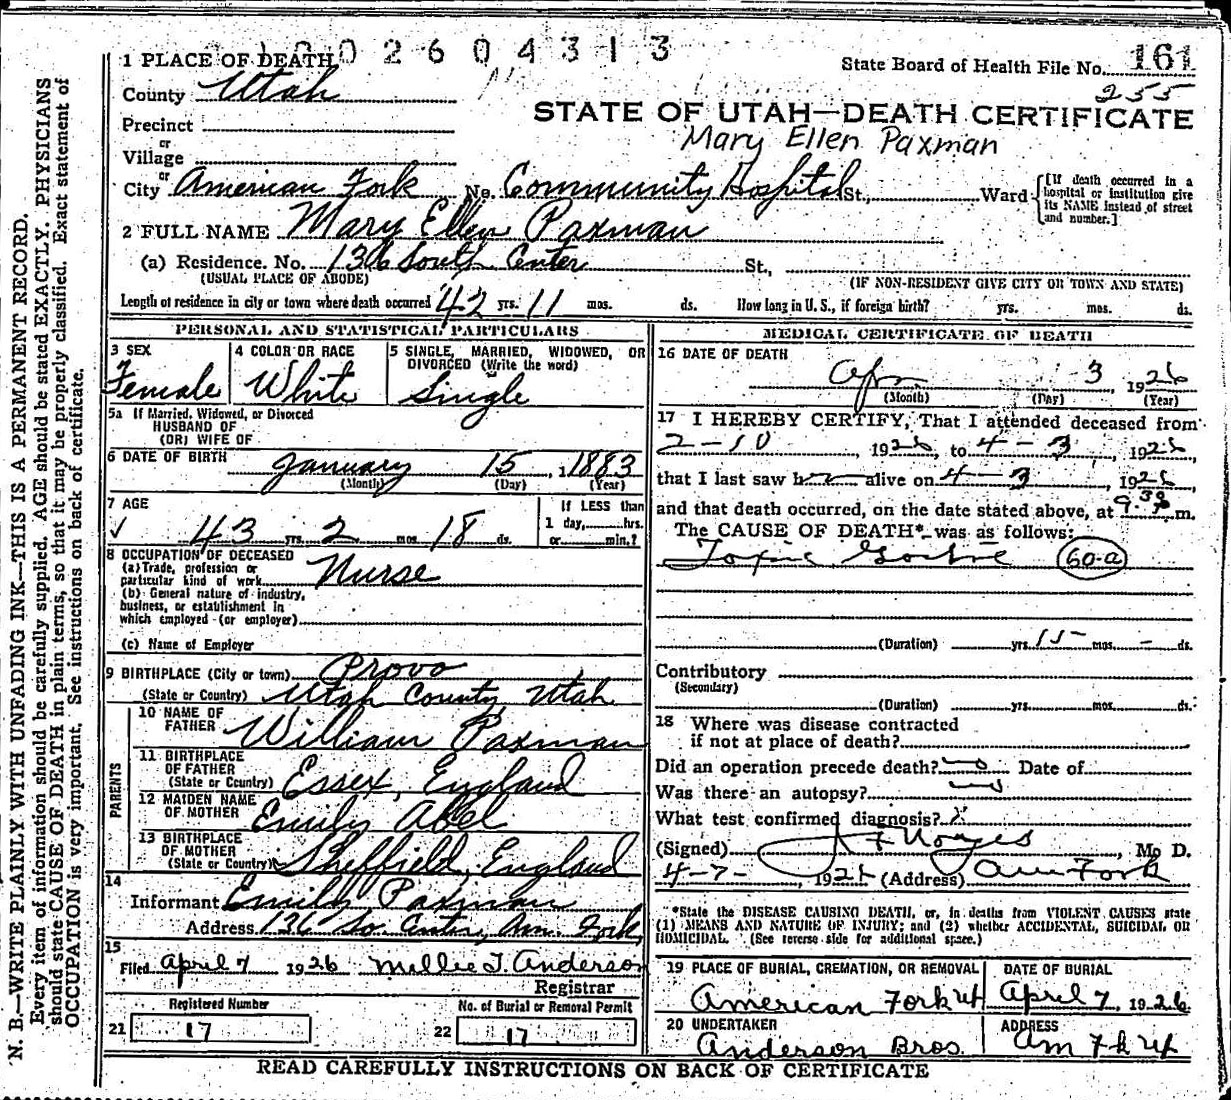 1002604313
1 PLACE OF DEATH
State Board of Health File No. 161
County Utah
255
STATE OF UTAH—DEATH CERTIFICATE
Precinct
Mary Ellen Paxman
or
Village
or
City American Fork No. Community Hospital St., Ward
[If death occurred in a hospital or institution give its NAME instead of street and number.]
2 FULL NAME Mary Ellen Paxman
(a) Residence. No. 136 South Center St.,
(USUAL PLACE OF ABODE) (IF NON-RESIDENT GIVE CITY OR TOWN AND STATE)
Length of residence in city or town where death occurred 42 yrs. 11 mos. ds. How long in U. S., if foreign birth? yrs. mos. ds.
PERSONAL AND STATISTICAL PARTICULARS
3 SEX
Female
4 COLOR OR RACE
White
5 SINGLE, MARRIED, WIDOWED, OR
DIVORCED (Write the word)
Single
5a If Married, Widowed, or Divorced
HUSBAND OF
(OR) WIFE OF
6 DATE OF BIRTH January 15, 1883
(Month) (Day) (Year)
7 AGE
43 yrs. 2 mos. 18 ds.
If LESS than
1 day, hrs.
or min.?
8 OCCUPATION OF DECEASED
(a) Trade, profession or
particular kind of work Nurse
(b) General nature of industry,
business, or establishment in
which employed (or employer)
(c) Name of Employer
9 BIRTHPLACE (City or town) Provo
(State or Country) Utah County, Utah
PARENTS
10 NAME OF
FATHER William Paxman
11 BIRTHPLACE
OF FATHER
(State or Country) Essex, England
12 MAIDEN NAME
OF MOTHER Emily Abel
13 BIRTHPLACE
OF MOTHER
(State or Country) Sheffield, England
14
Informant Emily Paxman
Address 136 So Center, Am. Fork,
15
Filed April 7 1926 Millie T. Anderson
Registrar
Registered Number
21 17
No. of Burial or Removal Permit
22 17
MEDICAL CERTIFICATE OF DEATH
16 DATE OF DEATH
Apr. 3 1926
(Month) (Day) (Year)
17 I HEREBY CERTIFY, That I attended deceased from
2-10 1926, to 4-3, 1926,
that I last saw h alive on 4-3, 1926,
and that death occurred, on the date stated above, at 9:30 m.
The CAUSE OF DEATH* was as follows:
Toxic Goitre 60-a
(Duration) yrs. 15 mos. - ds.
Contributory
(Secondary)
(Duration) yrs. mos. ds.
18 Where was disease contracted
if not at place of death?
Did an operation precede death? no Date of
Was there an autopsy? no
What test confirmed diagnosis?
(Signed) Noyes, M. D.
4-7-, 1926 (Address) Am Fork
*State the DISEASE CAUSING DEATH, or, in deaths from VIOLENT CAUSES state
(1) MEANS AND NATURE OF INJURY; and (2) whether ACCIDENTAL, SUICIDAL OR
HOMICIDAL. (See reverse side for additional space.)
19 PLACE OF BURIAL, CREMATION, OR REMOVAL
American Fork Ut
DATE OF BURIAL
April 7, 1926
20 UNDERTAKER
Anderson Bros.
ADDRESS
Am Fk Ut
READ CAREFULLY INSTRUCTIONS ON BACK OF CERTIFICATE
N. B.—WRITE PLAINLY WITH UNFADING INK—THIS IS A PERMANENT RECORD.
Every item of information should be carefully supplied. AGE should be stated EXACTLY. PHYSICIANS
should state CAUSE OF DEATH in plain terms, so that it may be properly classified. Exact statement of
OCCUPATION is very important. See instructions on back of certificate.